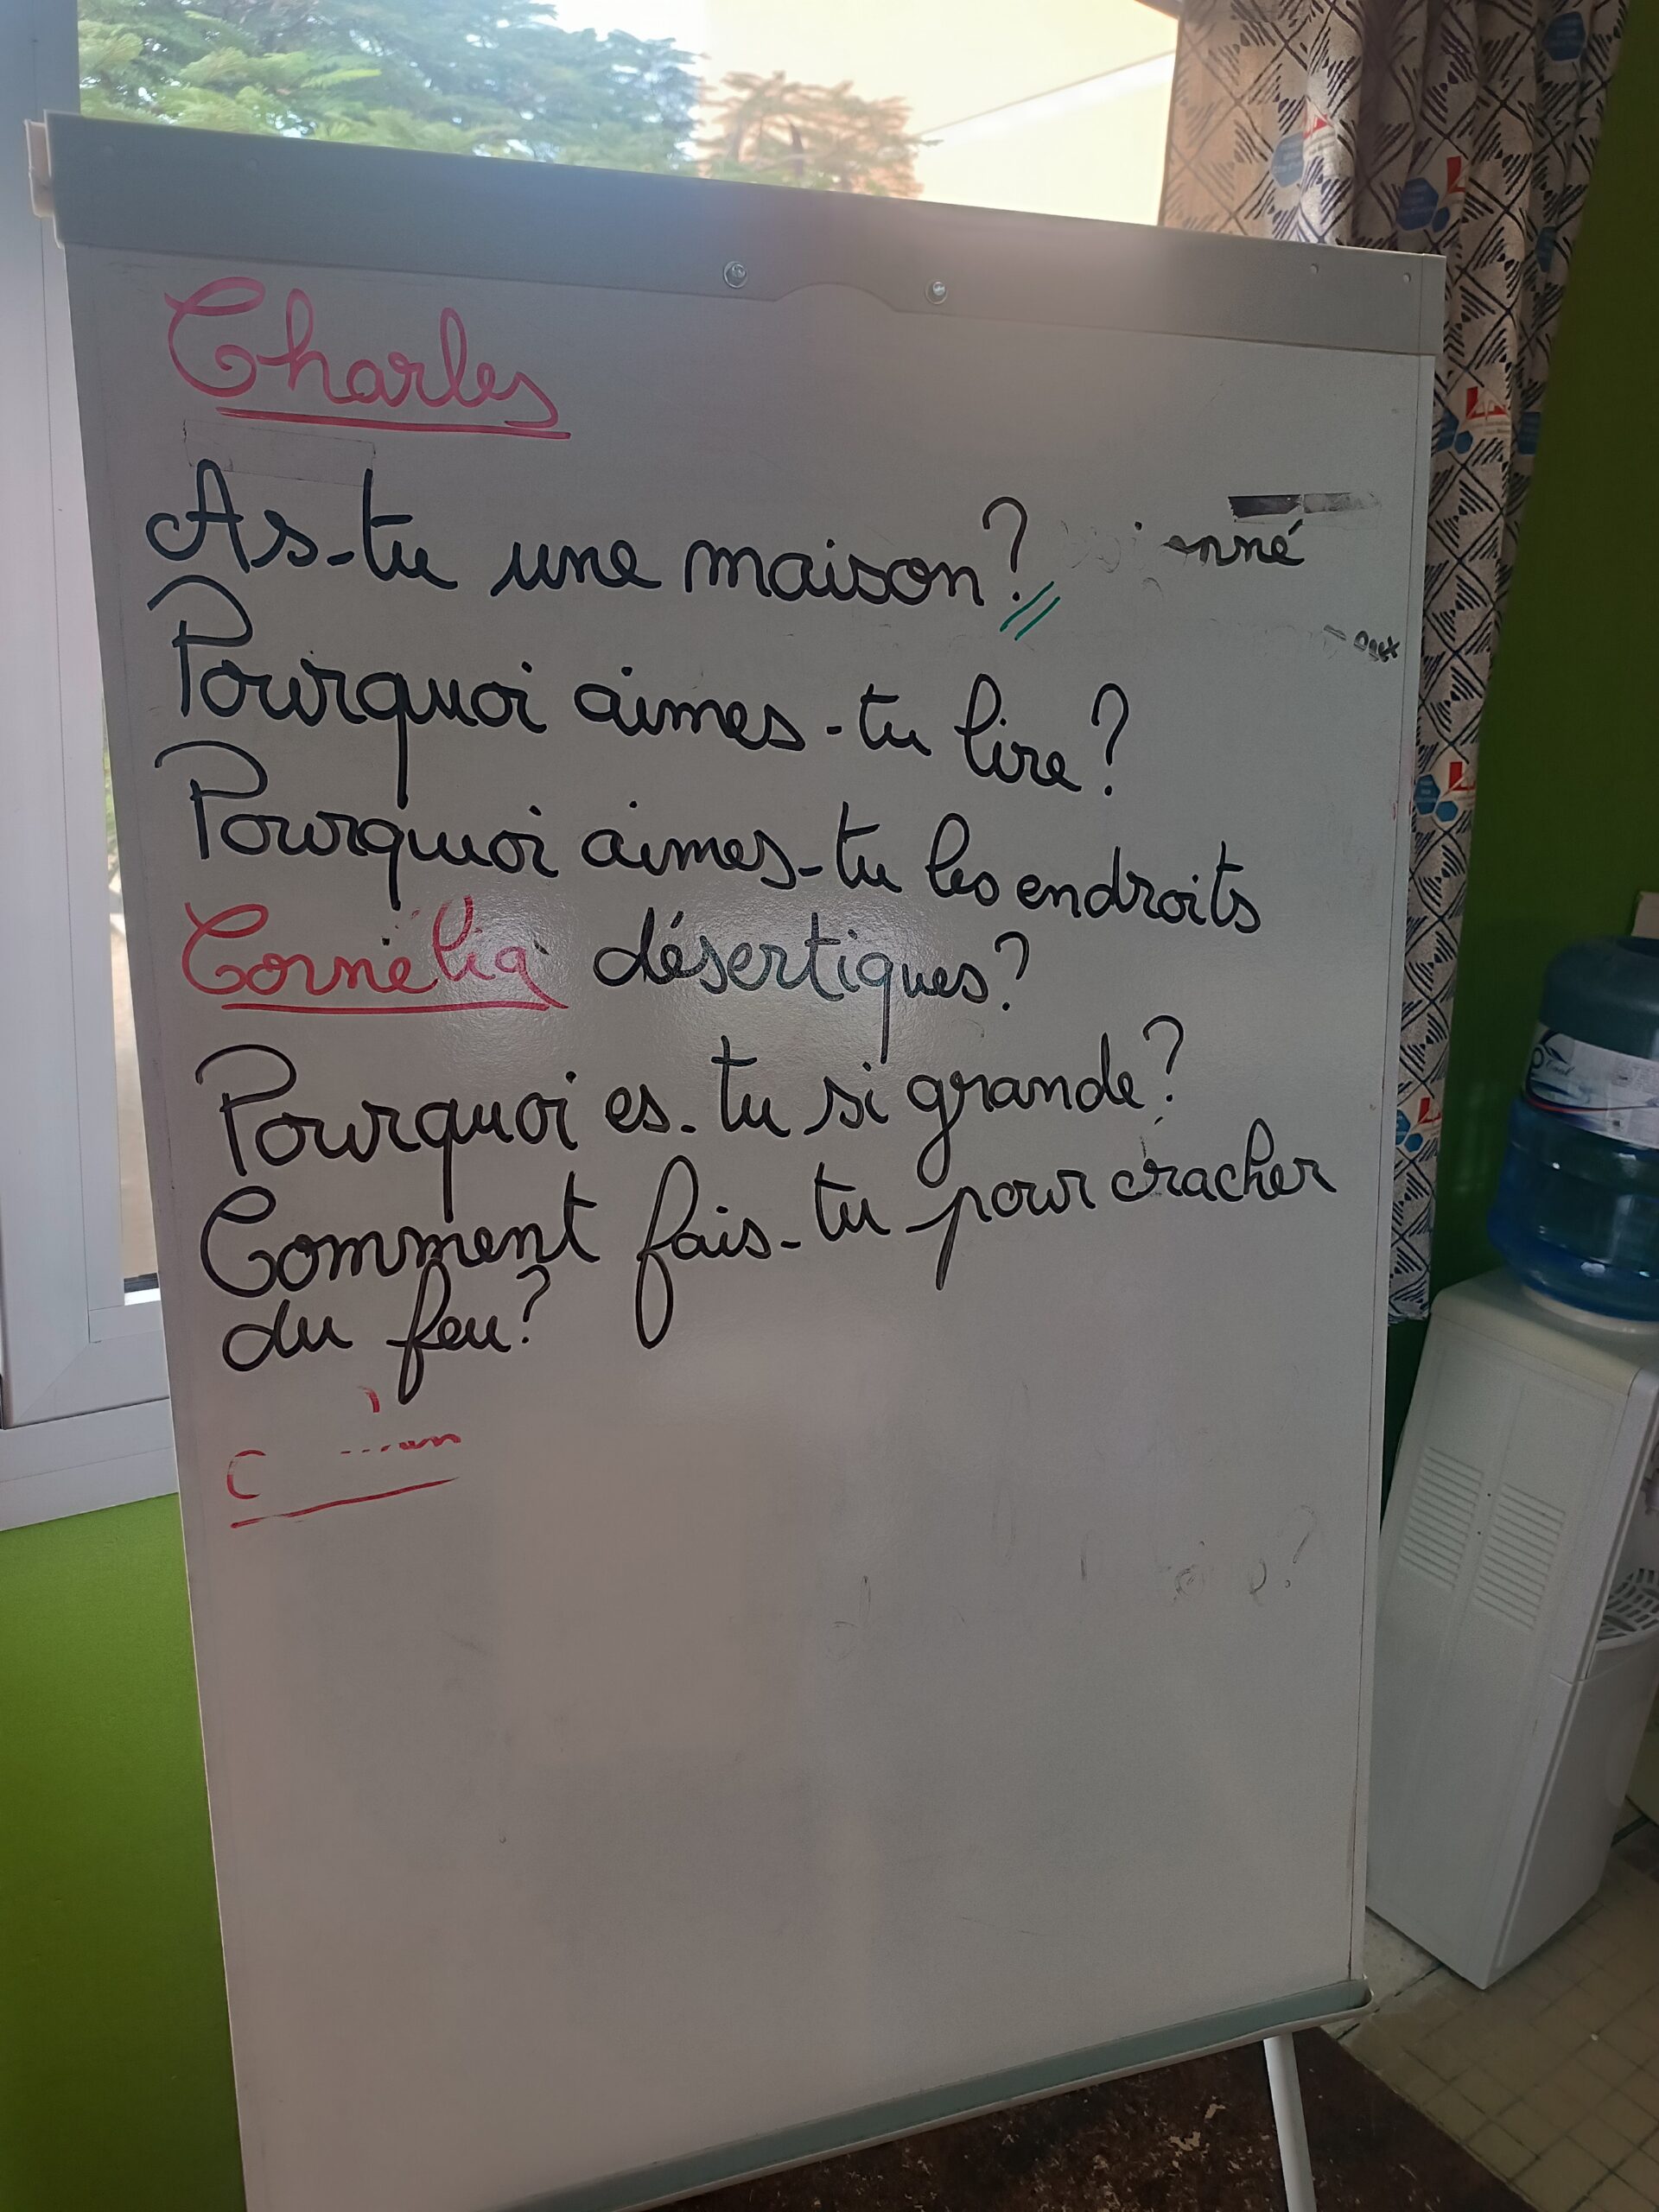 Charles
As-tu une maison? onné
eux
Pourquoi aimes-tu lire?
Pourquoi aimes-tu les endroits
Cornélia désertiques?
Pourquoi es-tu si grande?
Comment fais-tu pour cracher
du feu?